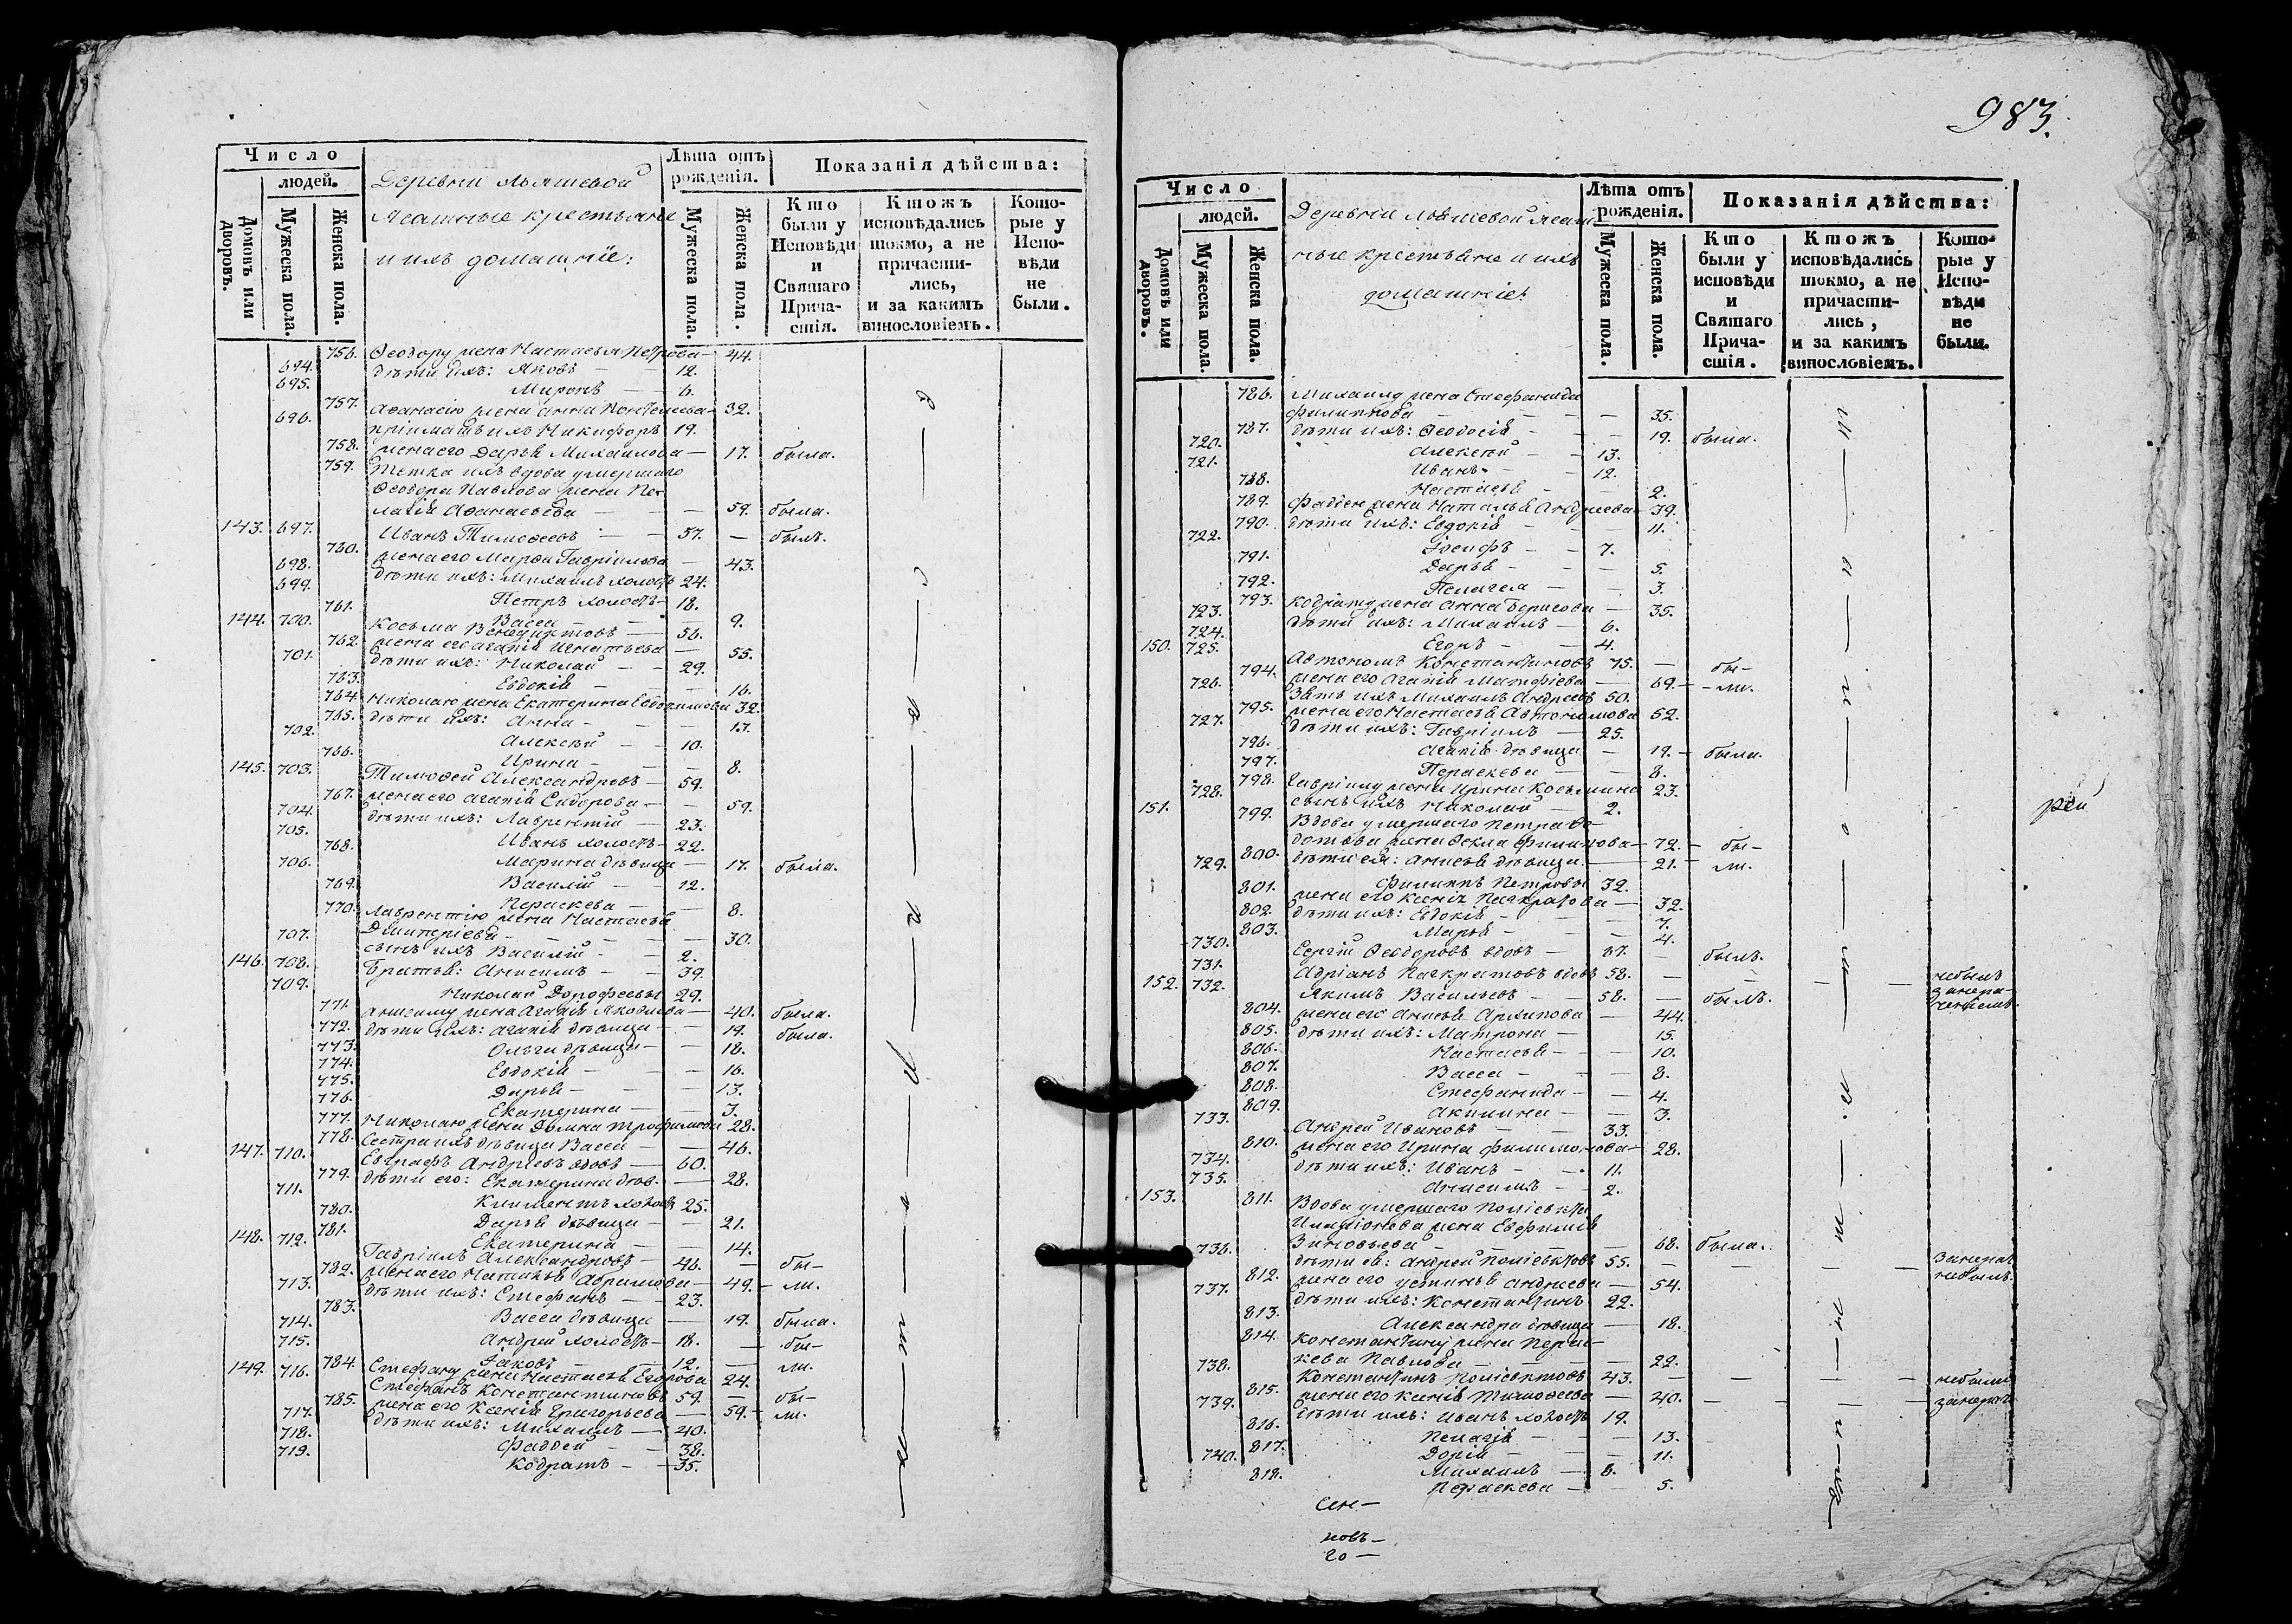 Число
людей.
Домовъ или дворовъ.
Мужеска пола.
Женска пола.
Деревни Льяшевой
Ясашные крестьяне
и ихъ домашнiе:
Лѣта отъ
рожденія.
Мужеска пола.
Женска пола.
Показанія дѣйства:
Кто
были у
Исповѣди
и
Святаго
Прича-
стія.
Ктожъ
исповѣдались
токмо, а не
причасти-
лись,
и за какимъ
винословіемъ.
Кото-
рые у
Испо-
вѣди
не
были.
756. Ѳеодору жена Настасья Петрова — 44.
694. дѣти ихъ: Яковъ — 12.
695. Миронъ — 6.
757. Аѳанасію жена Анна — 32.
696. пріиматъ ихъ Никифоръ 19.
758. жена его Дарья Михаилова — 17. была.
759. Тетка ихъ вдова умершаго
Ѳеодора Павлова жена Пе-
лагія Аѳанасьева — — 59. была.
143. 697. Иванъ Тимоѳеевъ — 57. — былъ.
760. жена его Марѳа Гавріилова — 43.
698. дѣти ихъ: Михаилъ холостъ 24.
699. Петръ холостъ — 18.
761. Васса — — 9.
144. 700. Косьма Венедиктовъ — 56.
762. жена его Агаѳія Игнатьева — 55.
701. дѣти ихъ: Николай — 29.
763. Евдокія — — 16.
764. Николаю жена Екатерина Евдокимова 32.
765. дѣти ихъ: Анна — — 13.
702. Алексѣй — 10.
766. Ирина — — 8.
145. 703. Тимоѳей Александровъ — 59.
767. жена его Агапія Сидорова — — 59.
704. дѣти ихъ: Лаврентій — 23.
705. Иванъ холостъ — 22.
768. Марина дѣвица — 17. была.
706. Василій — 12.
769. Параскева — — 8.
770. Лаврентію жена Настасья
Дмитріева — — 30.
707. сынъ ихъ Василій — 2.
146. 708. Братья: Анисимъ — 39.
709. Николай Дороѳеевы 29.
771. Анисиму жена Агаѳія Яковлева — 40. была.
772. дѣти ихъ: Агапія дѣвица — 19. была.
773. Ольга дѣвица — 18.
774. Евдокія — — 16.
775. Дарья — — 13.
776. Екатерина — — 3.
777. Николаю жена Домна Трофимова 28.
778. Сестра ихъ дѣвица Васса — 46.
147. 710. Евграфъ Андреевъ вдовъ — 60.
779. дѣти его: Екатерина дѣв. — 28.
711. Климентъ холостъ 25.
780. Дарья дѣвица — — 21.
781. Екатерина — — 14.
148. 712. Гавріилъ Александровъ — 46. — бы-
782. жена его Наталья Абрамова — 49. — ли.
713. дѣти ихъ: Стефанъ — 23.
783. Васса дѣвица — 19. была.
714. Андрей холостъ — 18. — бы-
715. Іаковъ — 12. — ли.
784. Стефану жена Настасья Егорова 24.
149. 716. Стефанъ Константиновъ 59. — бы-
785. жена его Ксенія Григорьева — 59. — ли.
717. дѣти ихъ: Михаилъ — 40.
718. Фаддей — 38.
719. Кодратъ — 35.
983.
Число
людей.
Домовъ или дворовъ.
Мужеска пола.
Женска пола.
Деревни Льяшевой Ясаш-
ные крестьяне и ихъ
домашніе:
Лѣта отъ
рожденія.
Мужеска пола.
Женска пола.
Показанія дѣйства:
Кто
были у
исповѣди
и
Святаго
Прича-
стія.
Ктожъ
исповѣдались
токмо, а не
причасти-
лись,
и за какимъ
винословіемъ.
Кото-
рые у
Испо-
вѣди
не
были.
786. Михаилу жена Стефанида
Филиппова — — 35.
787. дѣти ихъ: Ѳеодосія — — 19. была.
720. Алексѣй — 13.
721. Иванъ — 12.
788. Настасья — — 2.
789. Фаддею жена Наталья Андреева — 39.
790. дѣти ихъ: Евдокія — — 11.
722. Іосифъ — 7.
791. Дарья — — 5.
792. Пелагея — — 3.
793. Кодрату жена Анна Борисова — 35.
723. дѣти ихъ: Михаилъ — 6.
724. Егоръ — 4.
150. 725. Автономъ Константиновъ 75. — бы-
794. жена его Агапія Матфіева — 69. — ли.
726. Зять ихъ Михаилъ Андреевъ 50.
795. жена его Настасья Автономова 52.
727. дѣти ихъ: Гавріилъ — 25.
796. Агапія дѣвица — 19. — была.
797. Параскева — — 8.
798. Гавріилу жена Ирина Косьмина 23.
728. сынъ ихъ Николай — 2.
151. 799. Вдова умершаго Петра Ѳе-
дотова жена Ѳекла Филипова — 72. — бы-
800. дѣти ея: Анисья дѣвица — 21. — ли.
729. Филиппъ Петровъ 32.
801. жена его Ксенія Панкратова — 32.
802. дѣти ихъ: Евдокія — — 7.
803. Марья — — 4.
730. Сергій Ѳеодоровъ вдовъ — 37. — былъ.
731. Адріанъ Панкратовъ вдовъ 58. — — — — небылъ
152. 732. Якимъ Васильевъ — 58. — былъ.
804. жена его Анисья Архипова — 44.
805. дѣти ихъ: Матрона — 15.
806. Настасья — — 10.
807. Васса — — 8.
808. Стефанида — — 4.
809. Акилина — — 3.
733. Андрей Ивановъ — 33.
810. жена его Ирина Филимонова — 28.
734. дѣти ихъ: Иванъ — 11.
735. Анисимъ — 2.
153. 811. Вдова умершаго Поліевкта
Иларіонова жена Евфимія
Зиновьева — — 68. была.
736. дѣти ея: Андрей Поліевктовъ 55. — — — — небылъ
812. жена его Устинья Андреева — 54.
737. дѣти ихъ: Константинъ 22.
813. Александра дѣвица — 18.
814. Константину жена Парас-
кева Павлова — — 22.
738. Константинъ Поліевктовъ 43. — — — — небыли
815. жена его Ксенія Тимоѳеева — 40.
739. дѣти ихъ: Иванъ холостъ 19.
816. Пелагія — — 13.
817. Дарія — — 11.
740. Михаилъ — 8.
818. Параскева — — 5.
рей
Сен-
новъ-
го-